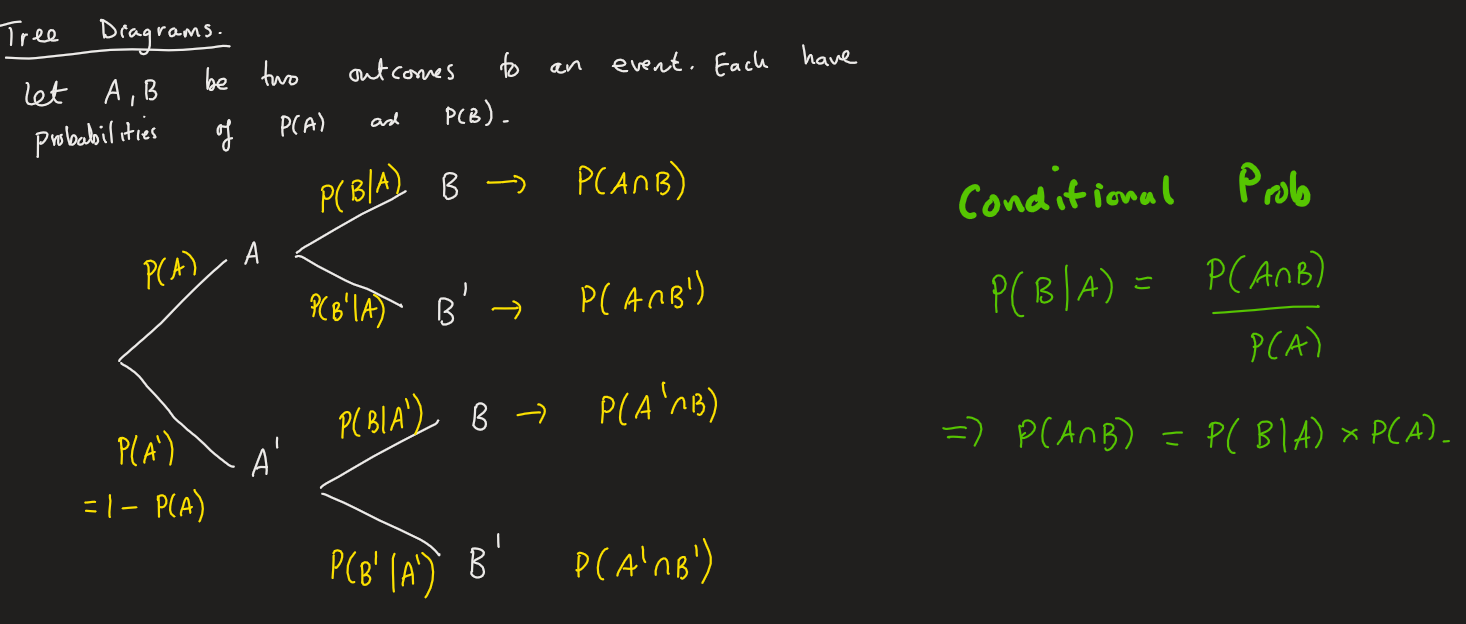 Tree Diagrams.
Let A, B be two outcomes to an event. Each have
probabilities of P(A) and P(B).
P(B|A) B → P(A∩B)
P(A) A
P(B'|A) B' → P(A∩B')
P(B|A') B → P(A'∩B)
P(A') A'
= 1 - P(A)
P(B'|A') B' P(A'∩B')
Conditional Prob
P(B|A) = P(A∩B)
P(A)
=> P(A∩B) = P(B|A) × P(A).